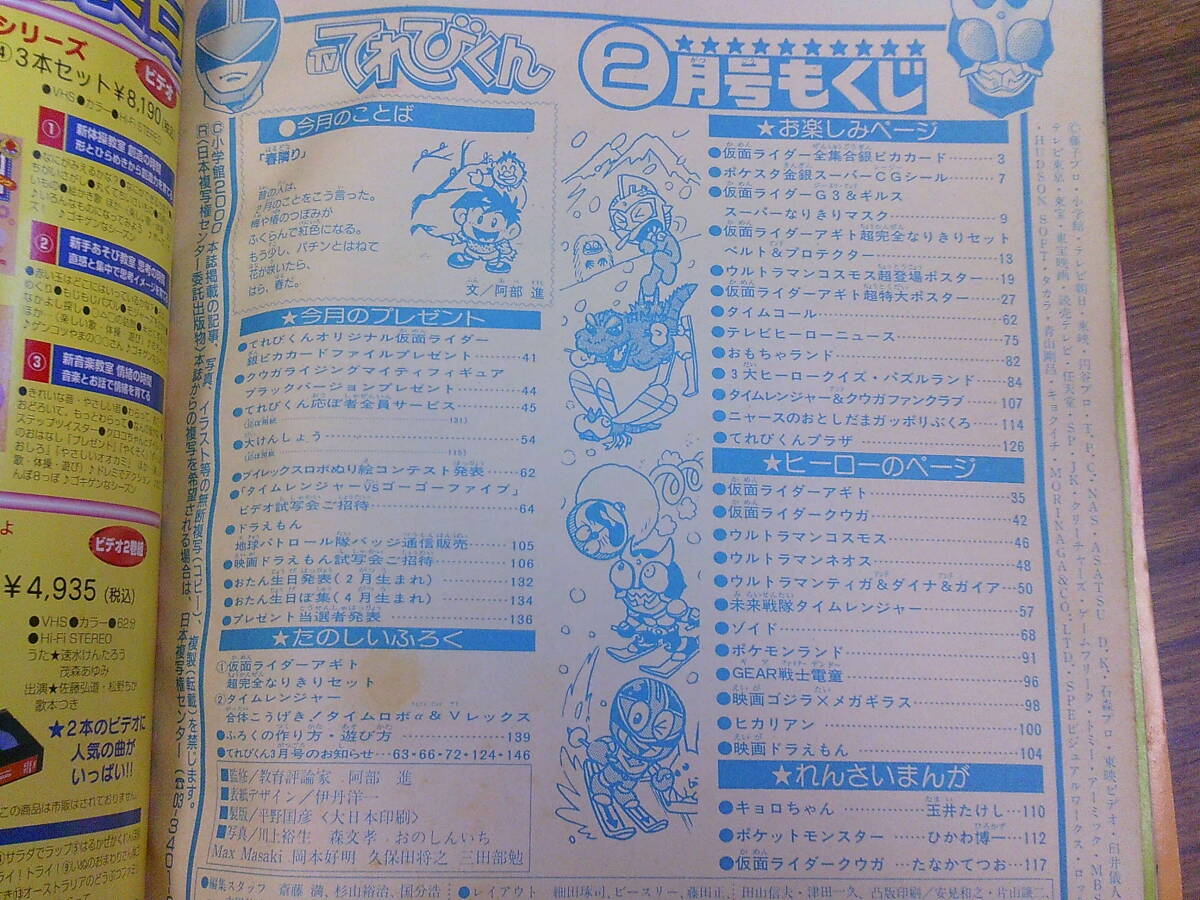 シリーズ
④3本セット¥8,190
ビデオ
●VHS●カラー●Hi-Fi STEREO
① 新体操教室 創造の時間
形とひらめきから創造力を育てる
② 新手あそび教室 思考の時間
直感と集中で思考イメージを育てる
③ 新音楽教室 情緒の時間
音楽とお話で情緒を育てる
ビデオ2巻組
¥4,935(税込)
●VHS●カラー●62分
●Hi-Fi STEREO
うた★速水けんたろう
茂森あゆみ
出演★佐藤弘道・松野ちか
歌本つき
★2本のビデオに
人気の曲が
いっぱい!!
この商品は市販はされておりません
TVてれびくん
②月号もくじ
●今月のことば
「春隣り」
昔の人は、
2月のことをこう言った。
梅や椿のつぼみが
ふくらんで紅色になる。
もう少し、パチンとはねて
花が咲いたら、
ほら、春だ。
文/阿部 進
★今月のプレゼント
●てれびくんオリジナル仮面ライダー
銀ピカカードファイルプレゼント……41
●クウガライジングマイティフィギュア
ブラックバージョンプレゼント……44
●てれびくん応ぼ者全員サービス……45
(応ぼ用紙……131)
●大けんしょう……54
(応ぼ用紙……115)
●ブイレックスロボぬり絵コンテスト発表……62
●「タイムレンジャーVSゴーゴーファイブ」
ビデオ試写会ご招待……64
●ドラえもん
地球パトロール隊バッジ通信販売……105
●映画ドラえもん試写会ご招待……106
●おたん生日発表(2月生まれ)……132
●おたん生日ぼ集(4月生まれ)……134
●プレゼント当選者発表……136
★たのしいふろく
①仮面ライダーアギト
超完全なりきりセット
②タイムレンジャー
合体こうげき!タイムロボα&Vレックス
●ふろくの作り方・遊び方……139
●てれびくん3月号のお知らせ・63・66・72・124・146
■監修/教育評論家 阿部 進
■表紙デザイン/伊丹洋一
■製版/平野国彦〈大日本印刷〉
■写真/川上裕生 森文孝 おのしんいち
Max Masaki 岡本好明 久保田将之 三田部勉
★お楽しみページ
●仮面ライダー全集合銀ピカカード……3
●ポケスタ金銀スーパーCGシール……7
●仮面ライダーG3&ギルス
スーパーなりきりマスク……9
●仮面ライダーアギト超完全なりきりセット
ベルト&プロテクター……13
●ウルトラマンコスモス超登場ポスター……19
●仮面ライダーアギト超特大ポスター……27
●タイムコール……62
●テレビヒーローニュース……75
●おもちゃランド……82
●3大ヒーロークイズ・パズルランド……84
●タイムレンジャー&クウガファンクラブ……107
●ニャースのおとしだまガッポリぶくろ……114
●てれびくんプラザ……126
★ヒーローのページ
●仮面ライダーアギト……35
●仮面ライダークウガ……42
●ウルトラマンコスモス……46
●ウルトラマンネオス……48
●ウルトラマンティガ&ダイナ&ガイア……50
●未来戦隊タイムレンジャー……57
●ゾイド……68
●ポケモンランド……91
●GEAR戦士電童……96
●映画ゴジラ×メガギラス……98
●ヒカリアン……100
●映画ドラえもん……104
★れんさいまんが
●キョロちゃん……玉井たけし…110
●ポケットモンスター……ひかわ博一…112
●仮面ライダークウガ……たなかてつお…117
●編集スタッフ 斎藤 満、杉山裕治、国分浩
●レイアウト 細田琢司、ビースリー、藤田正、田山信夫・津田一久、凸版印刷/安見和之・片山譲二、
©小学館2000 本誌掲載の記事、写真、イラスト等の無断複写(コピー)、複製(転載)を禁じます。
R〈日本複写権センター委託出版物〉本誌からの複写を希望される場合は、日本複写権センター(☎03-3401-
©藤子プロ・小学館・テレビ朝日・東映・円谷プロ・T.P.C・NAS・ASATSU D.K・石森プロ・東映ビデオ・臼井儀人